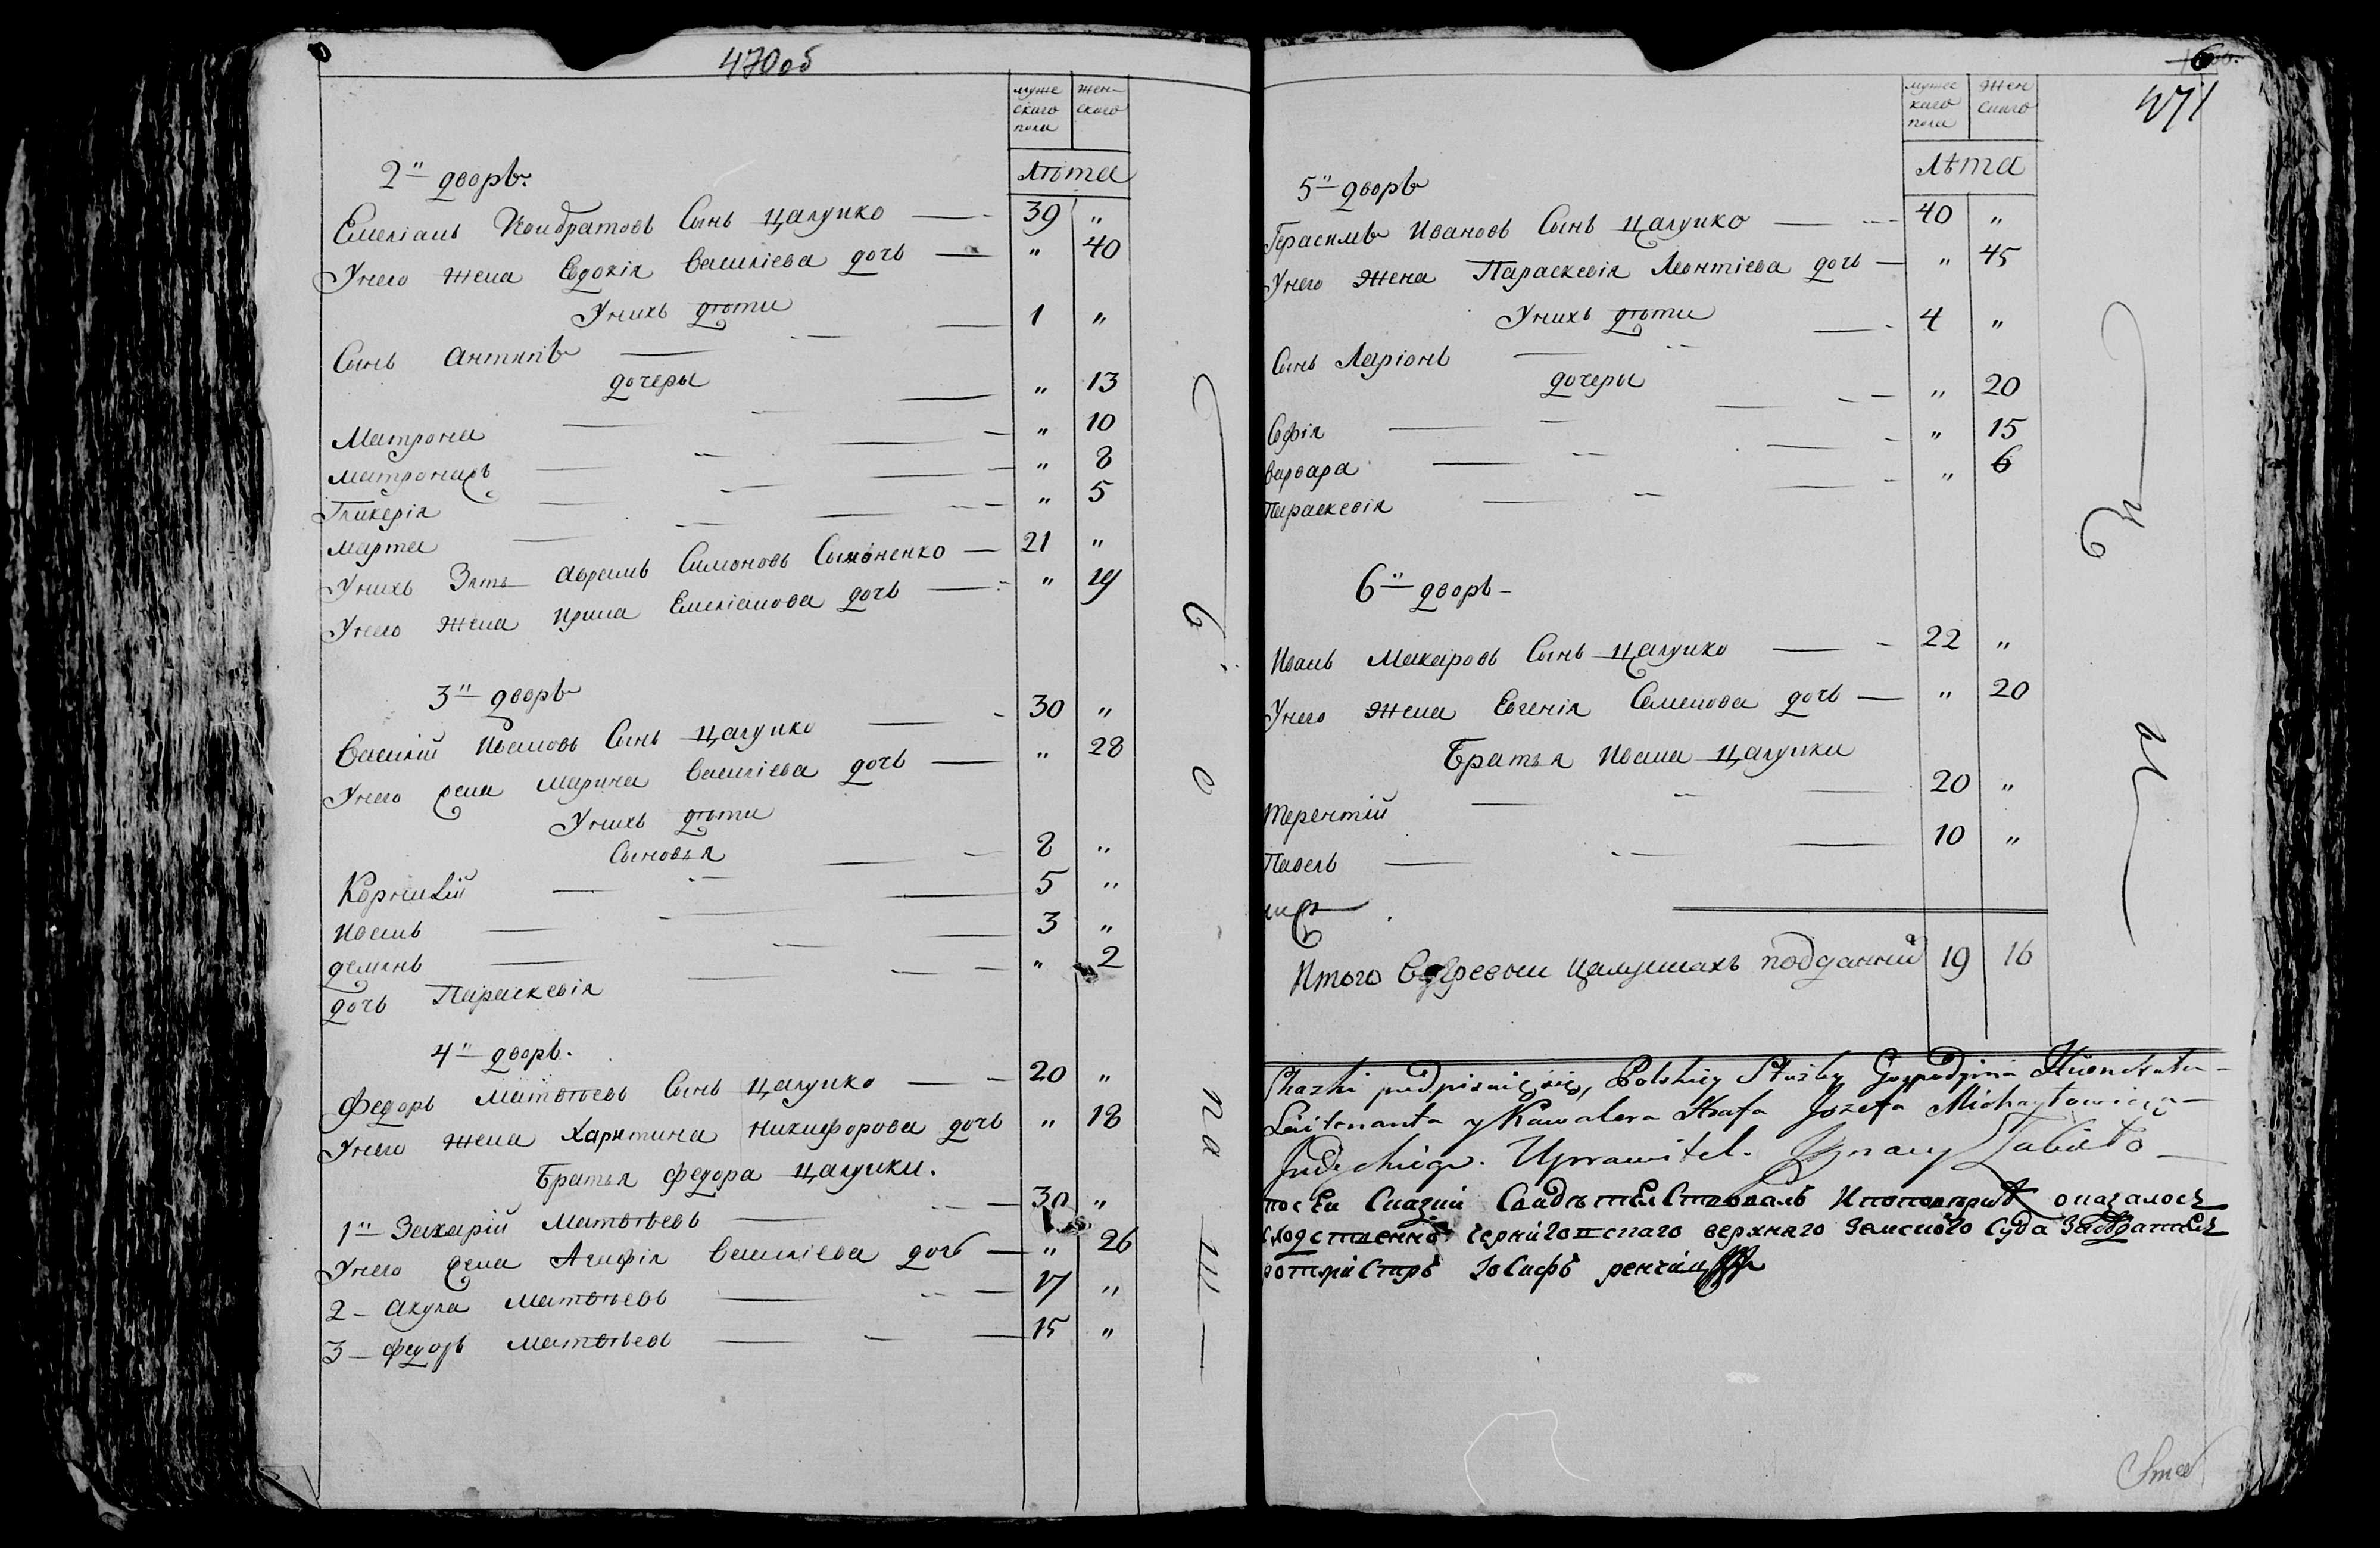 470об
муже
ского
пола
жен-
ского
Лѣта
2й дворъ.
Емеліанъ Кондратовъ Сынъ Цалупко 39 "
Унего жена Евдокія Василіева дочь " 40
Унихъ дѣти
Сынъ Антипъ 1 "
дочеры
Матрона " 13
Матрона " 10
Гликерія " 8
Марта " 5
Унихъ Зять Аврамъ Симоновъ Симоненко 21 "
Унего жена Ирина Емеліанова дочь " 19
3й дворъ
Василій Ивановъ Сынъ Цалупко 30 "
Унего жена Марина Василіева дочь " 28
Унихъ дѣти
Сыновья
Корнилій 8 "
Иванъ 5 "
Демянъ 3 "
дочь Параскевія " 2
4й дворъ.
Федоръ Матвѣевъ Сынъ Цалупко 20 "
Унего жена Харитина Никифорова дочь " 18
Братья Федора Цалупки.
1й Захарій Матвѣевъ 30 "
Унего жена Агафія Василіева дочь " 26
2 Акула Матвѣевъ 17 "
3 Федоръ Матвѣевъ 15 "
6
о
па
471
мужес
каго
пола
жен
скаго
Лѣта
5й дворъ
Герасимъ Ивановъ Сынъ Цалупко 40 "
Унего жена Параскевія Леонтіева дочь " 45
Унихъ дѣти
Сынъ Ларіонъ 4 "
дочеры
Софія " 20
Варвара " 15
Параскевія " 6
6й дворъ
Иванъ Макаровъ Сынъ Цалупко 22 "
Унего жена Евгенія Семенова дочь " 20
Братья Ивана Цалупки
Терентій 20 "
Павелъ 10 "
Итого Вдеревни Цалупках подданній 19 16
Skazki podpisuię się, Polskiey Służby Gospodyna
Leitenanta y Kawalera Hrafa Jozefa Michayłowicza
Judyckiego. Uprawitel. Ignacy
по сеи Сказки Свидѣтелствовалъ оказалось
черниговскаго верхняго Земского Суда Заседатель
ротмистръ Іосифъ